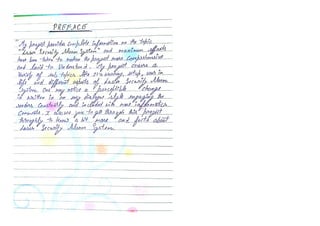 PREFACE
"My project provides complete information on the topic
"Laser Security Alarm System" and maximum efforts
have been taken to make the project more comprehensive
and lucid to understand. My project covers a
variety of sub topics like its working, setup, uses in
life and different aspects of Laser Security Alarm
System. One may notice a perceptible change
is written in an easy dialogue style engaging the
readers constantly and included with more information
contents. I advise you to get through this project
throughly to learn a lot more and facts about
Laser Security Alarm System.